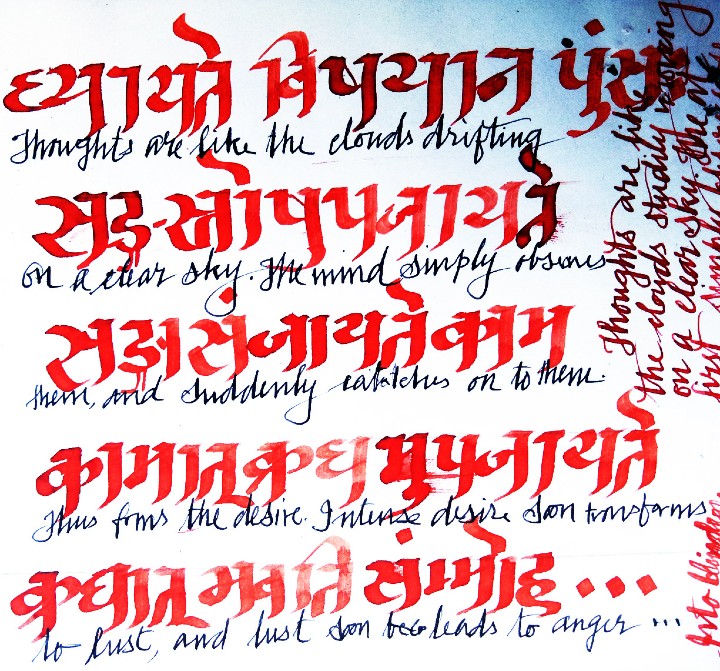 ध्यायते विषयान पुंसः
Thoughts are like the clouds drifting
सङ्स्तेषुपजायते
on a clear sky. The mind simply observes
सङ्गासंजायतेकाम
them, and suddenly catches on to them.
कामात्क्रधमुपजायते
Thus forms the desire. Intense desire soon transforms
क्रधात्भवति संम्मोह...
to lust, and lust soon leads to anger ...
Thoughts are like
the clouds studily moving
on a clear sky. The
first simply
into